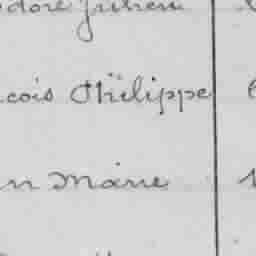 dore Julien
cois Philippe
n Marie